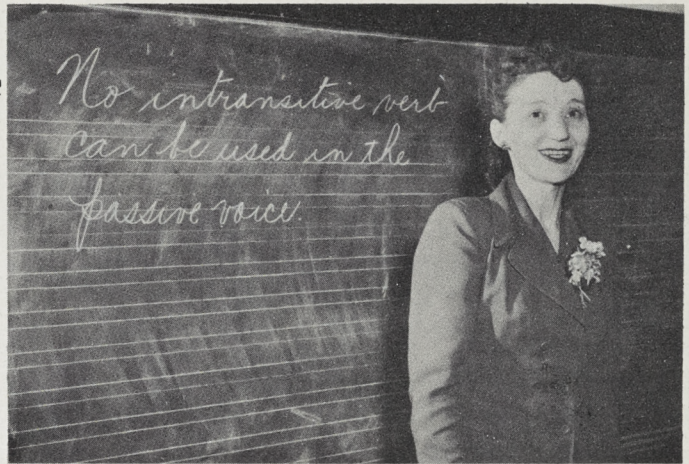 No intransitive verb
can be used in the
passive voice.